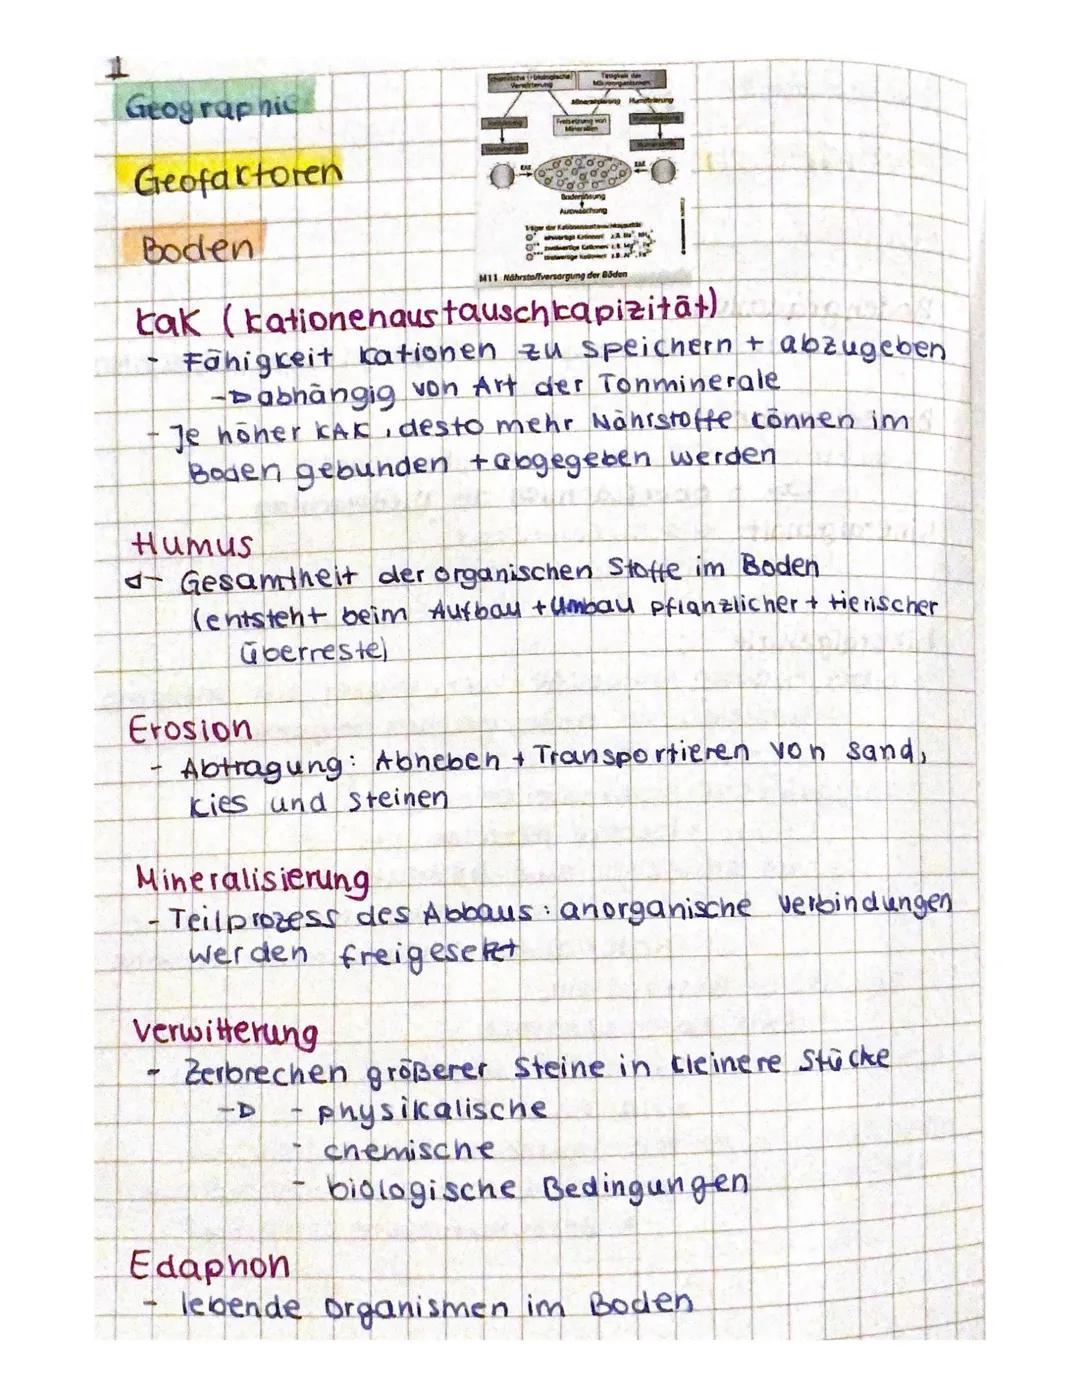 1
Geographie
Geofaktoren
Boden
chemische + biologische Verwitterung
Tätigkeit der Mikroorganismen
Mineralisierung Humifizierung
Freisetzung von Mineralien
KAK
KAK
Bodenlösung
Auswaschung
Träger der Kationenaustauschkapazität
einwertige Kationen z.B.
zweiwertige Kationen z.B.
dreiwertige Kationen z.B.
M11 Nährstoffversorgung der Böden
KaK (Kationenaustauschkapizität)
- Fähigkeit Kationen zu speichern + abzugeben
→ abhängig von Art der Tonminerale
- Je höher KAK, desto mehr Nährstoffe können im
Boden gebunden + abgegeben werden
Humus
- Gesamtheit der organischen Stoffe im Boden
(entsteht beim Aufbau + Umbau pflanzlicher + tierischer
überreste)
Erosion
- Abtragung: Abheben + Transportieren von Sand,
Kies und Steinen
Mineralisierung
- Teilprozess des Abbaus: anorganische Verbindungen
werden freigesetzt
Verwitterung
- Zerbrechen größerer Steine in kleinere Stücke
→ - physikalische
- chemische
- biologische Bedingungen
Edaphon
- lebende Organismen im Boden